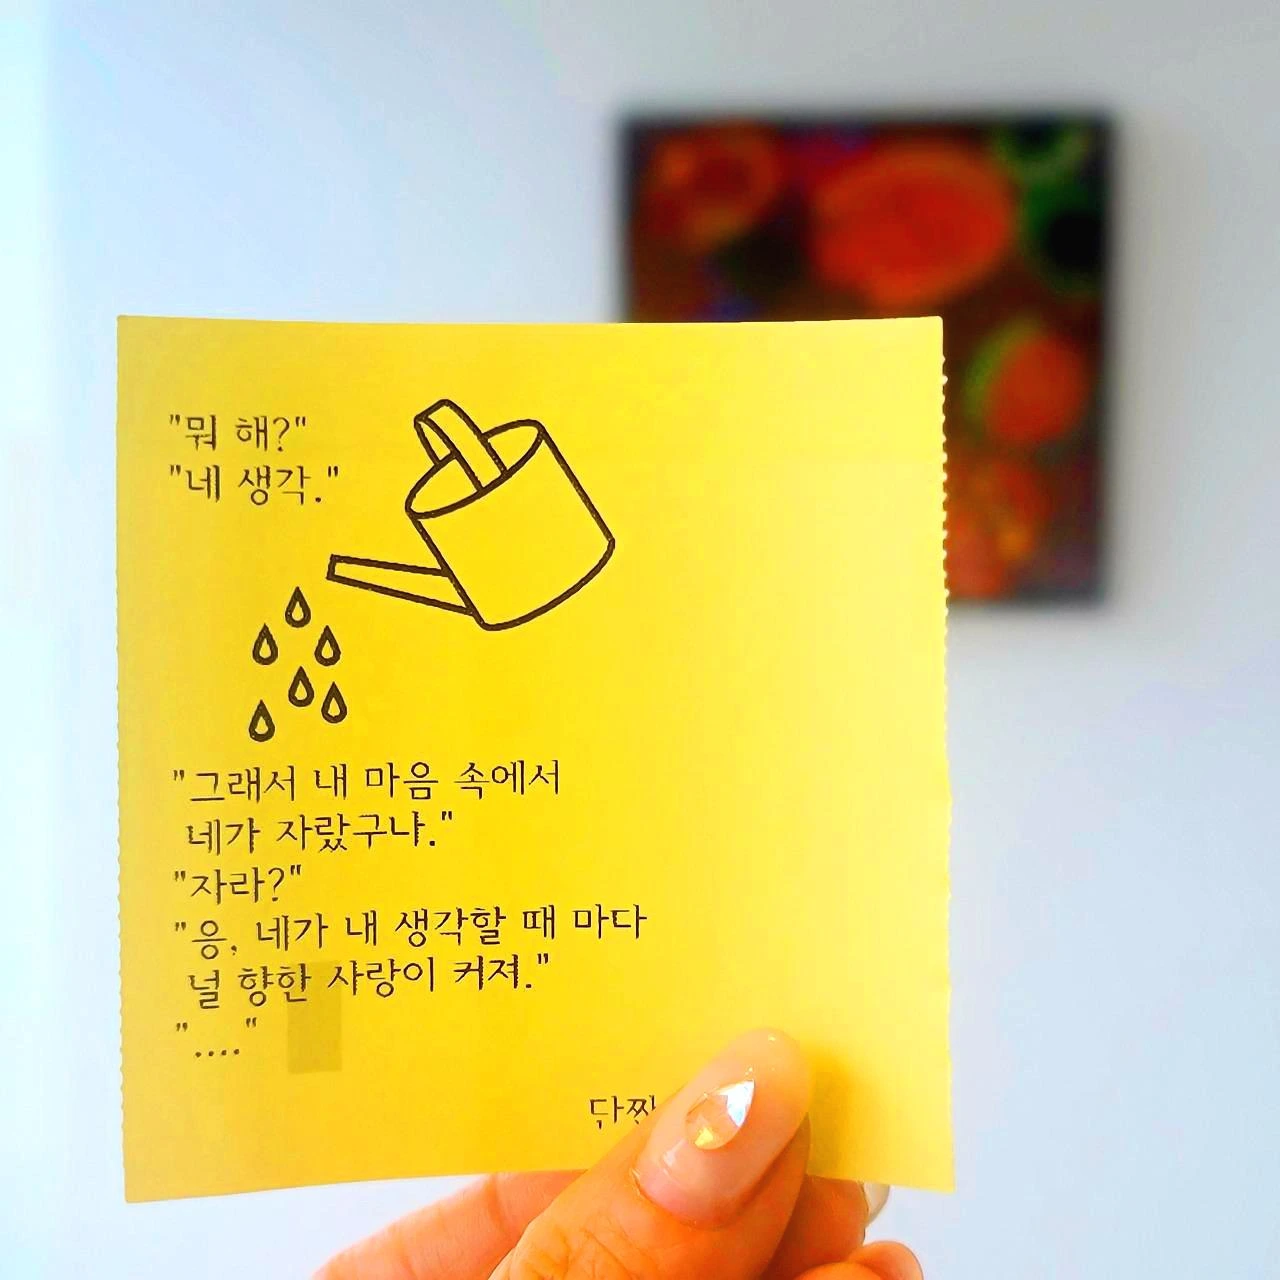 "뭐 해?"
"네 생각."
"그래서 내 마음 속에서
네가 자랐구나."
"자라?"
"응, 네가 내 생각할 때 마다
널 향한 사랑이 커져."
"...."
단짠